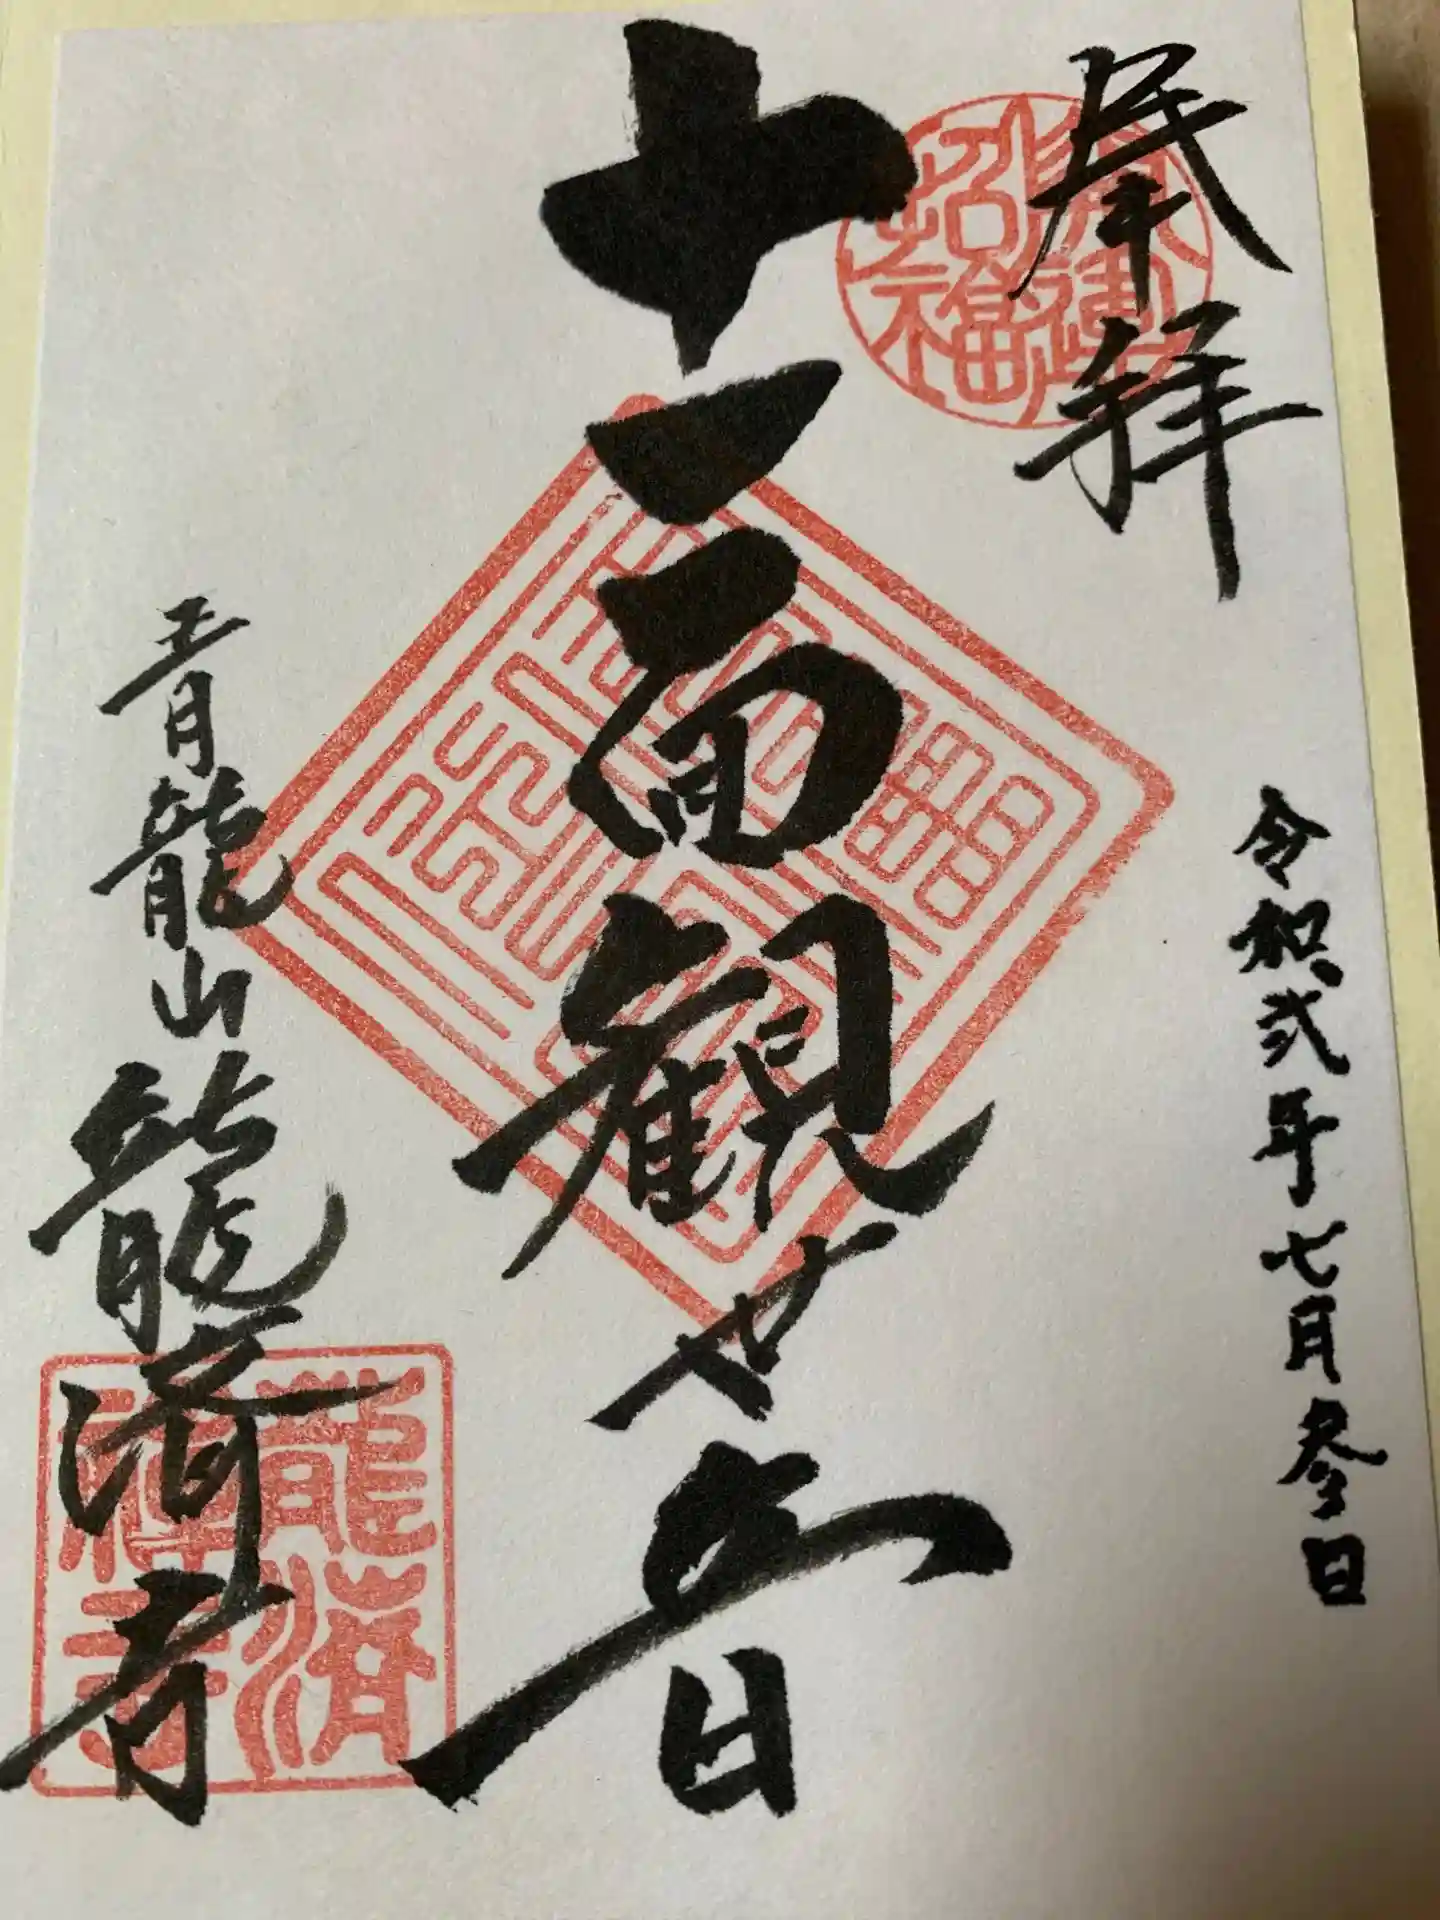 奉拝
令和弐年七月参日
十一面観世音
青龍山龍済寺
龍済
禅寺